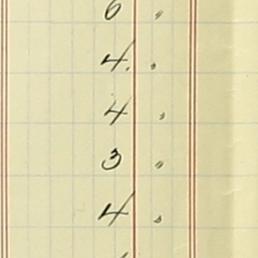 6 "
4. "
4 "
3 "
4 "